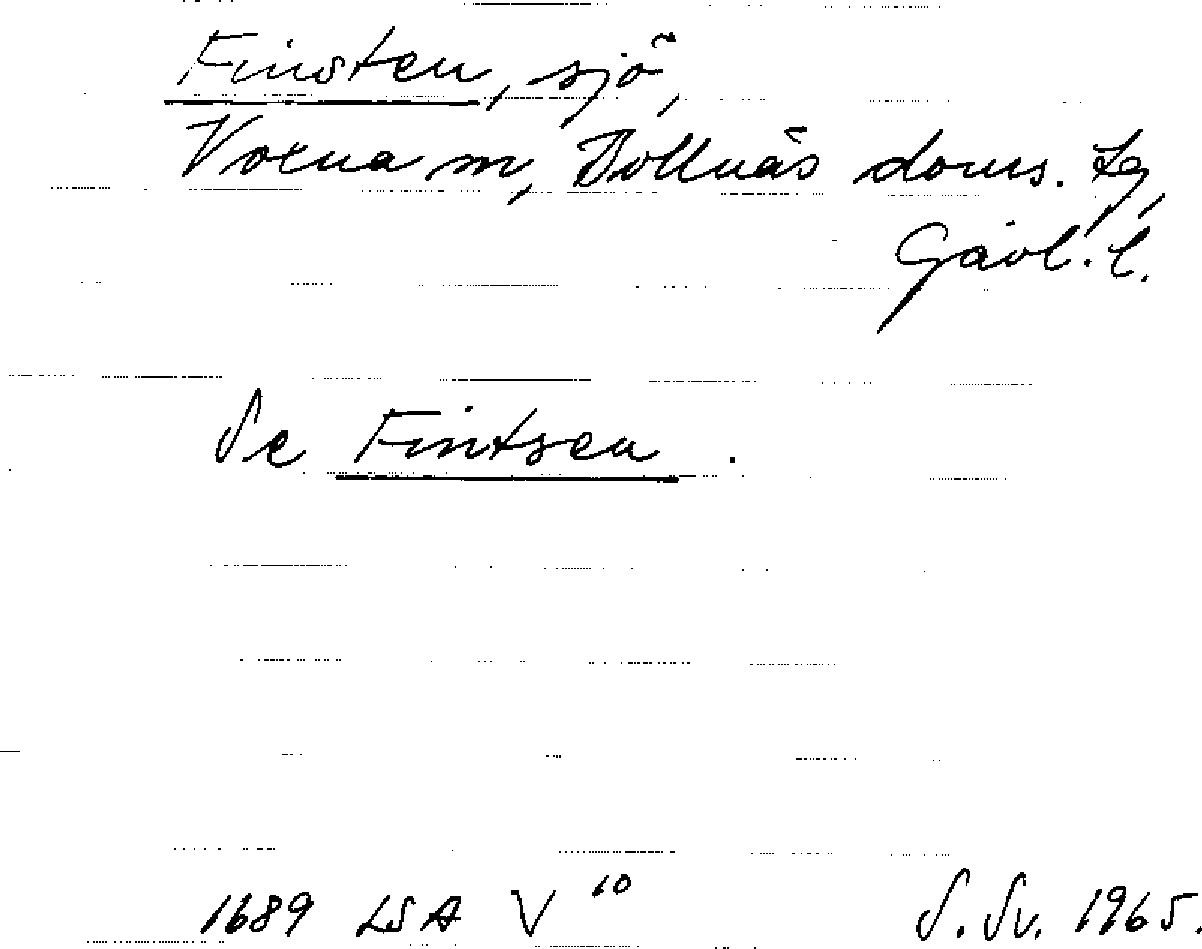 Finsten, sjö,
Voxna sn, Bollnäs doms. tg,
Gävl. l.
Se Fintsen.
1689 LSA V 10 S. Sv. 1965.